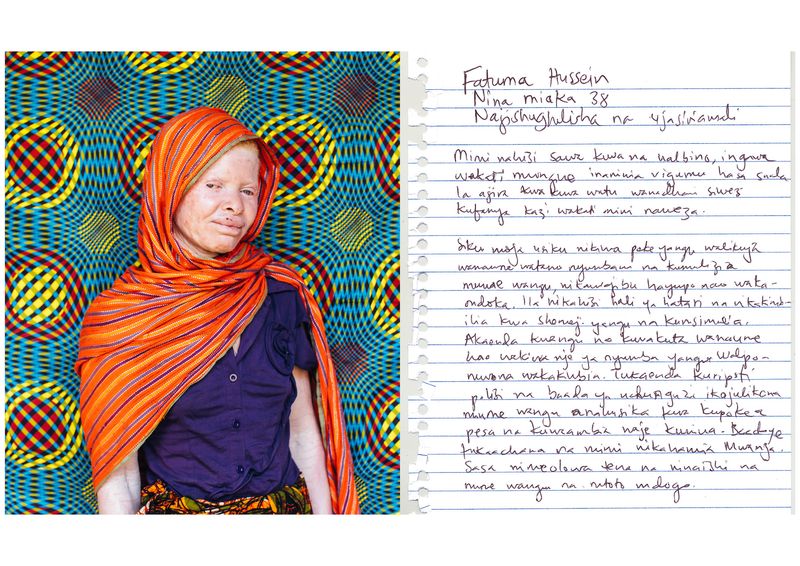 Fatuma Hussein
Nina miaka 38
Najishughulisha na ujasiriamali
Mimi nahisi sawa kwa na ualbino, ingawa
wakati mwingine inaniwia vigumu hasa suala
la ajira kwa kuwa watu wanadhani siwez
kufanya kazi wakati mimi naweza.
Siku moja usiku nikiwa peke yangu walikuja
wanaume watano nyumbani na kumuulizia
mume wangu, nikawajibu hayupo nao waka-
ondoka. Ila nikahisi hali ya hatari na nikakimb-
ilia kwa shemeji yangu na kumsimulia.
Akaenda kwangu na kuwakuta wanaume
hao wakiwa nje ya nyumba yangu Walipo-
muona wakakimbia. Tukaenda kuripoti
polisi na baada ya uchunguzi ikajulikana
mume wangu anahusika kwa kupokea
pesa na kuwaambia waje kuniua. Baadaye
tukaachana na mimi nikahamia Mwanza.
Sasa nimeolewa tena na ninaishi na
mume wangu na mtoto mdogo.